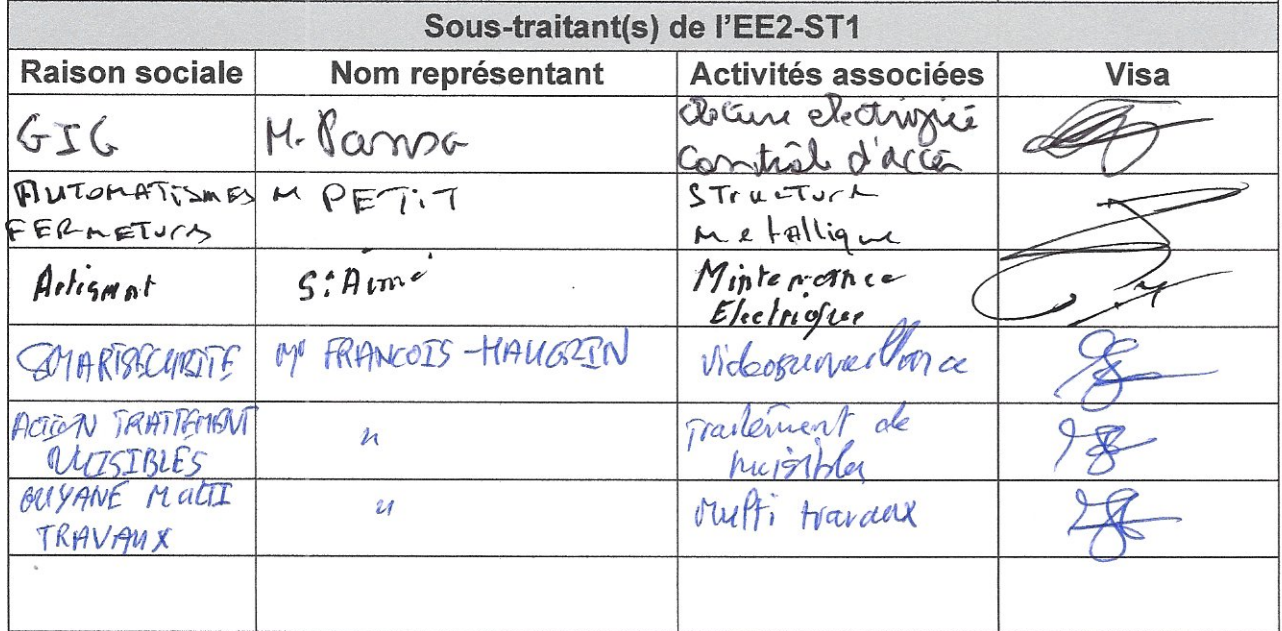 Sous-traitant(s) de l'EE2-ST1
Raison sociale Nom représentant Activités associées Visa
GIG M. Pansa Cloture electrifié
Contrôle d'accès
AUTOMATISMES M PETIT STructure
FERMETURES Metallique
Artignant St Aimé Mintenance
Electrique
SMARTSECURITE Mr FRANCOIS-HAUGRIN videosurveillance
ACTION TRAITEMENT " Traitement de
NUISIBLES nuisibles
GUYANE Multi " Multi travaux
TRAVAUX